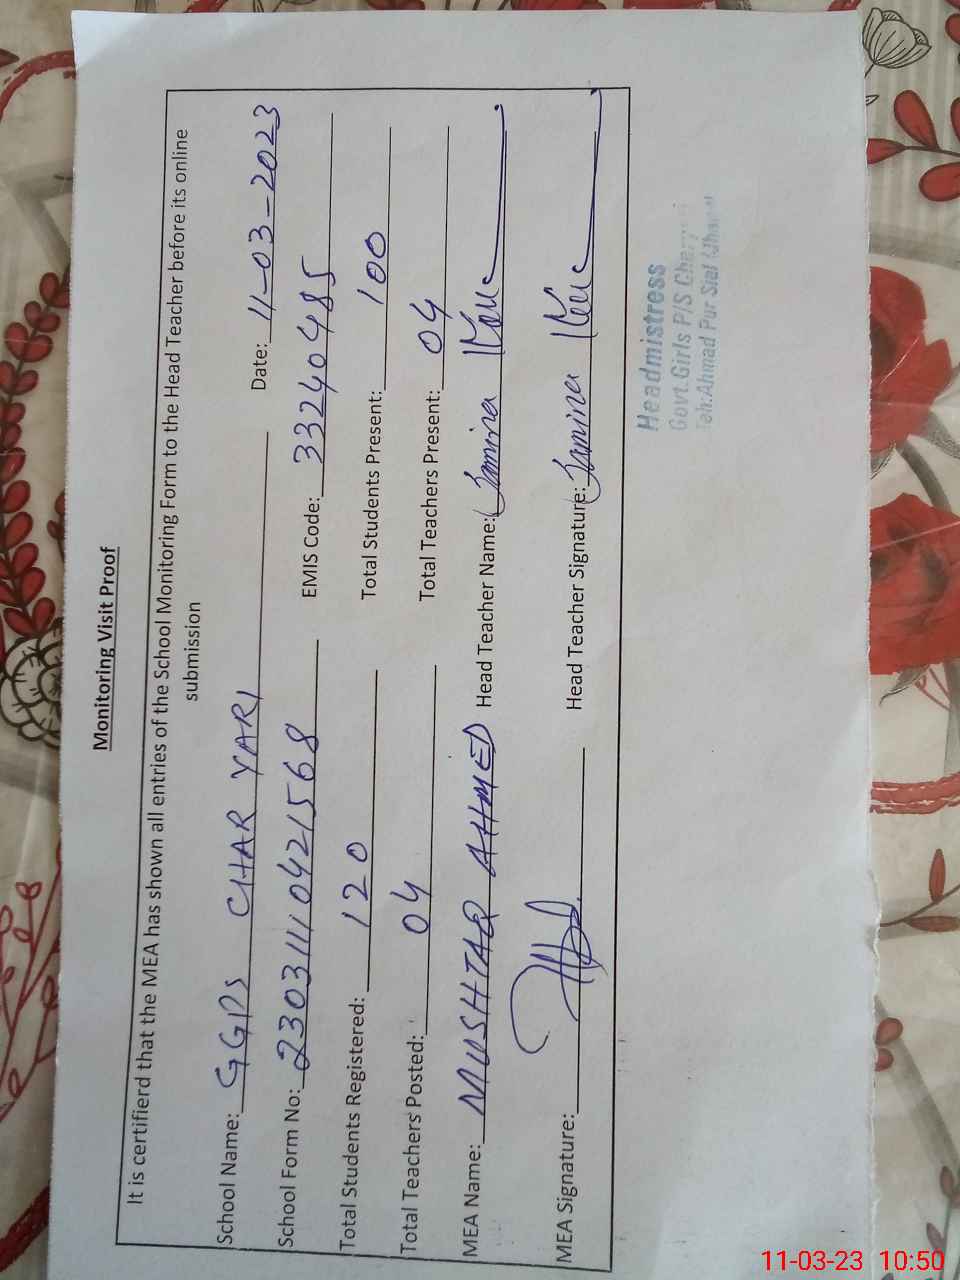 Monitoring Visit Proof
It is certifierd that the MEA has shown all entries of the School Monitoring Form to the Head Teacher before its online
submission
School Name: GGPS CHAR YARI Date: 11-03-2023
School Form No: 230311110421568 EMIS Code: 33240485
Total Students Registered: 120 Total Students Present: 100
Total Teachers Posted: 04 Total Teachers Present: 04
MEA Name: MUSHTAQ AHMED Head Teacher Name: Samina
MEA Signature: Head Teacher Signature: Samina
Headmistress
Govt.Girls P/S
Teh:Ahmad Pur Sial
11-03-23 10:50